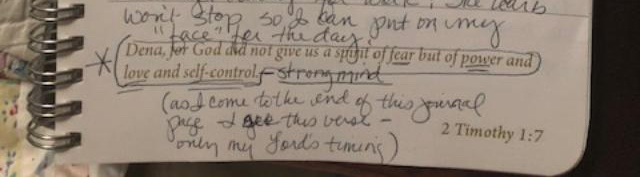 won't stop so I can put on my
"face" for the day.
Dena, for God did not give us a spirit of fear but of power and
love and self-control. - strong mind
(as I come to the end of this journal
page I see this verse -
2 Timothy 1:7
only my Lord's timing)